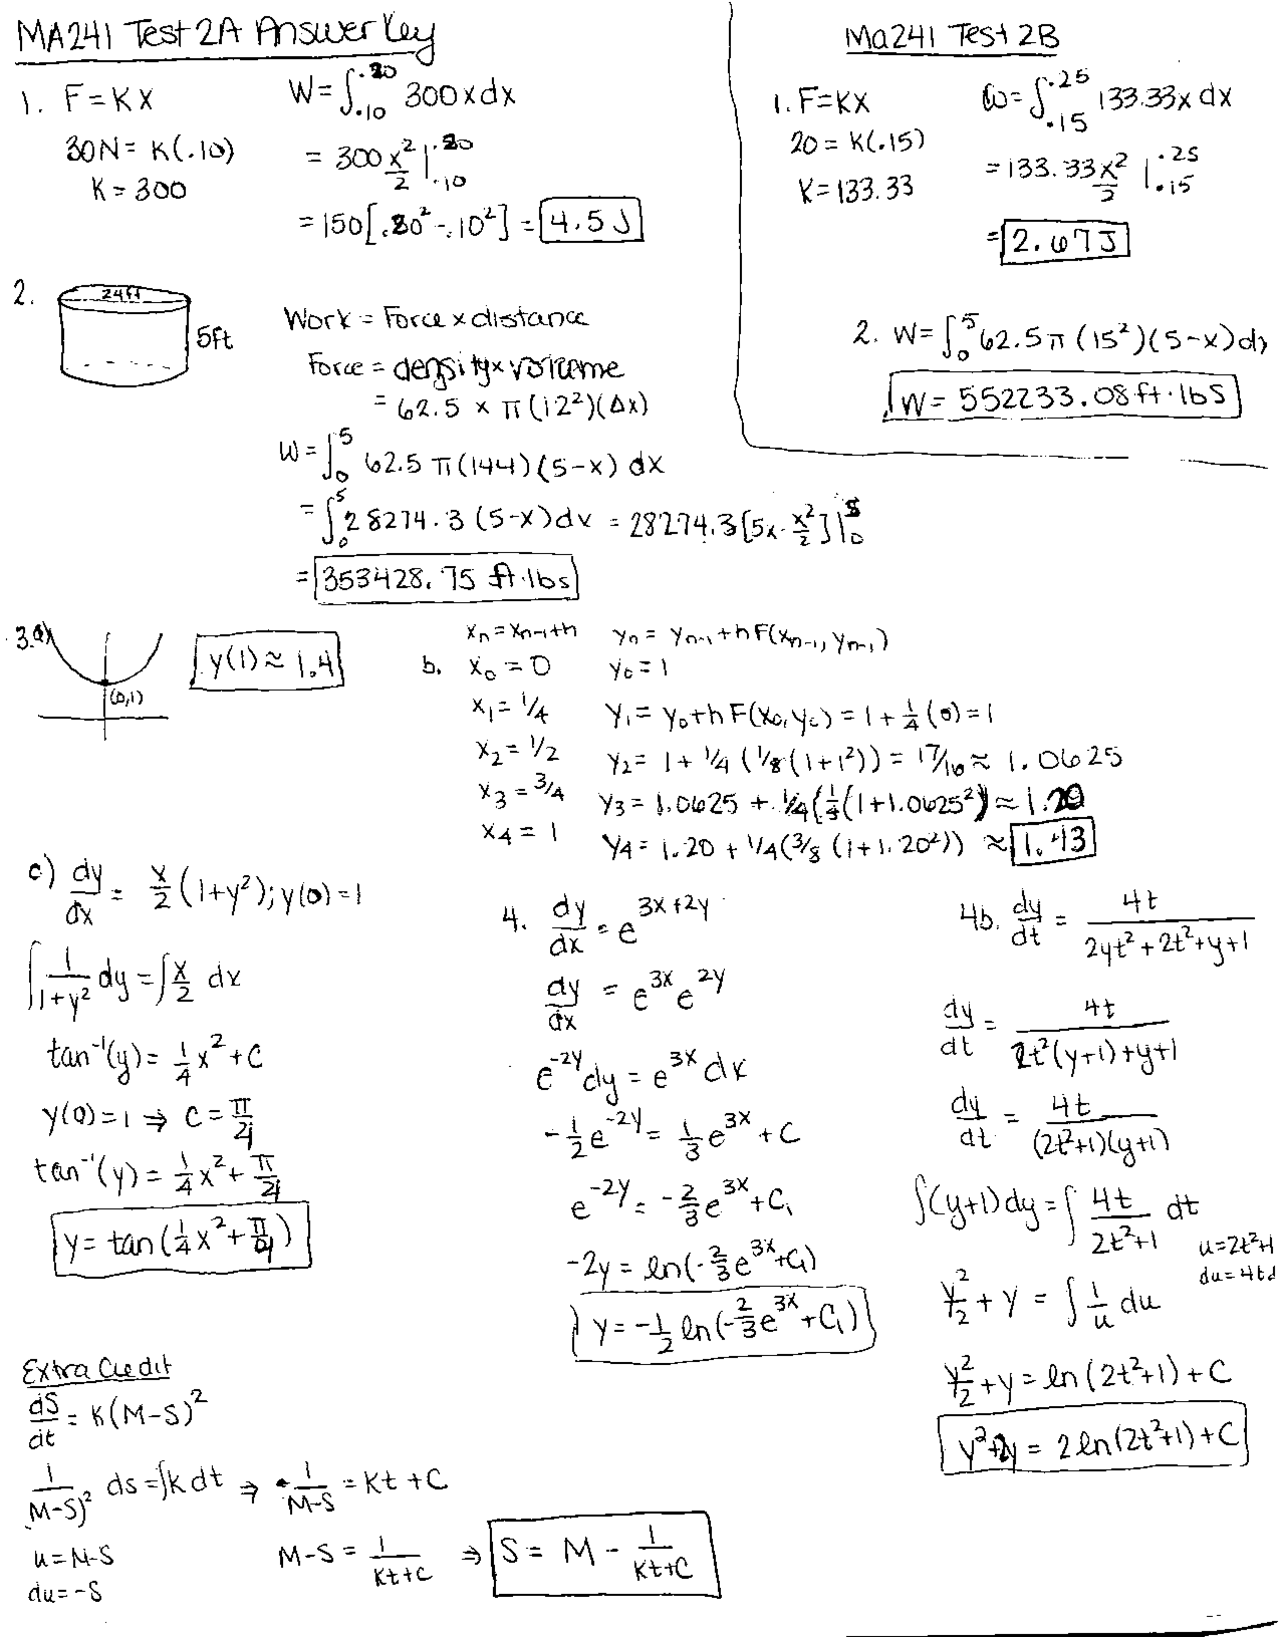 MA241 Test 2A Answer Key
1. F=KX
30N = K(.10)
K = 300
W = ∫_{.10}^{.20} 300xdx
= 300 x²/2 |_{.10}^{.20}
= 150[.20² - .10²] = 4.5 J
2. 24ft
5ft
Work = Force x distance
Force = density x volume
= 62.5 x π(12²)(Δx)
W = ∫_0^5 62.5 π(144)(5-x) dx
= ∫_0^5 28274.3 (5-x)dx = 28274.3[5x - x²/2]|_0^5
= 353428.75 ft·lbs
Ma241 Test 2B
1. F=KX
20 = K(.15)
K = 133.33
W = ∫_{.15}^{.25} 133.33x dx
= 133.33 x²/2 |_{.15}^{.25}
= 2.67J
2. W = ∫_0^5 62.5π(15²)(5-x)dx
W = 552233.08 ft·lbs
3.a) (0,1)
y(1) ≈ 1.4
x_n = x_{n-1}+h y_n = y_{n-1} + hF(x_{n-1}, y_{n-1})
b. x_0 = 0 y_0 = 1
x_1 = 1/4 y_1 = y_0 + hF(x_0, y_0) = 1 + 1/4(0) = 1
x_2 = 1/2 y_2 = 1 + 1/4(1/8(1+1²)) = 17/16 ≈ 1.0625
x_3 = 3/4 y_3 = 1.0625 + 1/4(1/4(1+1.0625²)) ≈ 1.20
x_4 = 1 y_4 = 1.20 + 1/4(3/8(1+1.20²)) ≈ 1.43
c) dy/dx = x/2 (1+y²); y(0)=1
∫ 1/(1+y²) dy = ∫ x/2 dx
tan⁻¹(y) = 1/4 x² + C
y(0)=1 ⇒ C = π/4
tan⁻¹(y) = 1/4 x² + π/4
y = tan(1/4 x² + π/4)
4. dy/dx = e^{3x+2y}
dy/dx = e^{3x} e^{2y}
e^{-2y} dy = e^{3x} dx
-1/2 e^{-2y} = 1/3 e^{3x} + C
e^{-2y} = -2/3 e^{3x} + C_1
-2y = ln(-2/3 e^{3x} + C_1)
y = -1/2 ln(-2/3 e^{3x} + C_1)
4b. dy/dt = 4t/(2yt² + 2t² + y + 1)
dy/dt = 4t/(2t²(y+1)+y+1)
dy/dt = 4t/((2t²+1)(y+1))
∫(y+1)dy = ∫ 4t/(2t²+1) dt
u=2t²+1
du=4td
y²/2 + y = ∫ 1/u du
y²/2 + y = ln(2t²+1) + C
y²+2y = 2ln(2t²+1) + C
Extra Credit
dS/dt = K(M-S)²
1/(M-S)² ds = ∫K dt ⇒ -1/(M-S) = Kt + C
u = M-S
du = -S
M-S = 1/(Kt+C) ⇒ S = M - 1/(Kt+C)